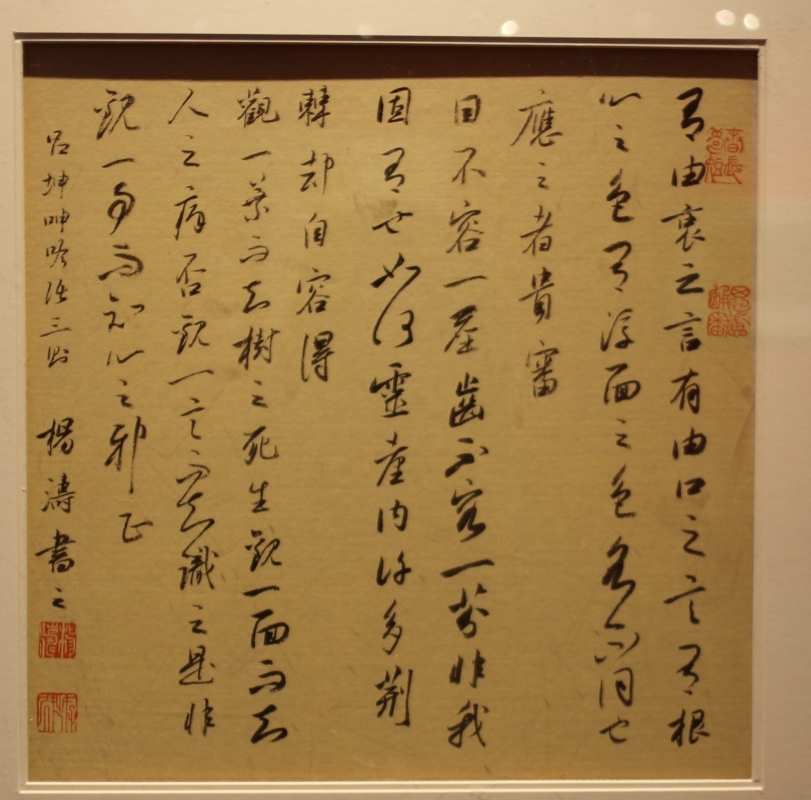 有由衷之言有由口之言有根
心之色有浮面之色各不同也
應之者貴審
目不容一塵齒不容一芥非我
固有也如何靈臺内許多荊
棘却自容得
觀一葉而知樹之死生觀一面而知
人之病否觀一言而知識之是非
觀一事而知心之邪正
呂坤呻吟語三則 楊濤書之